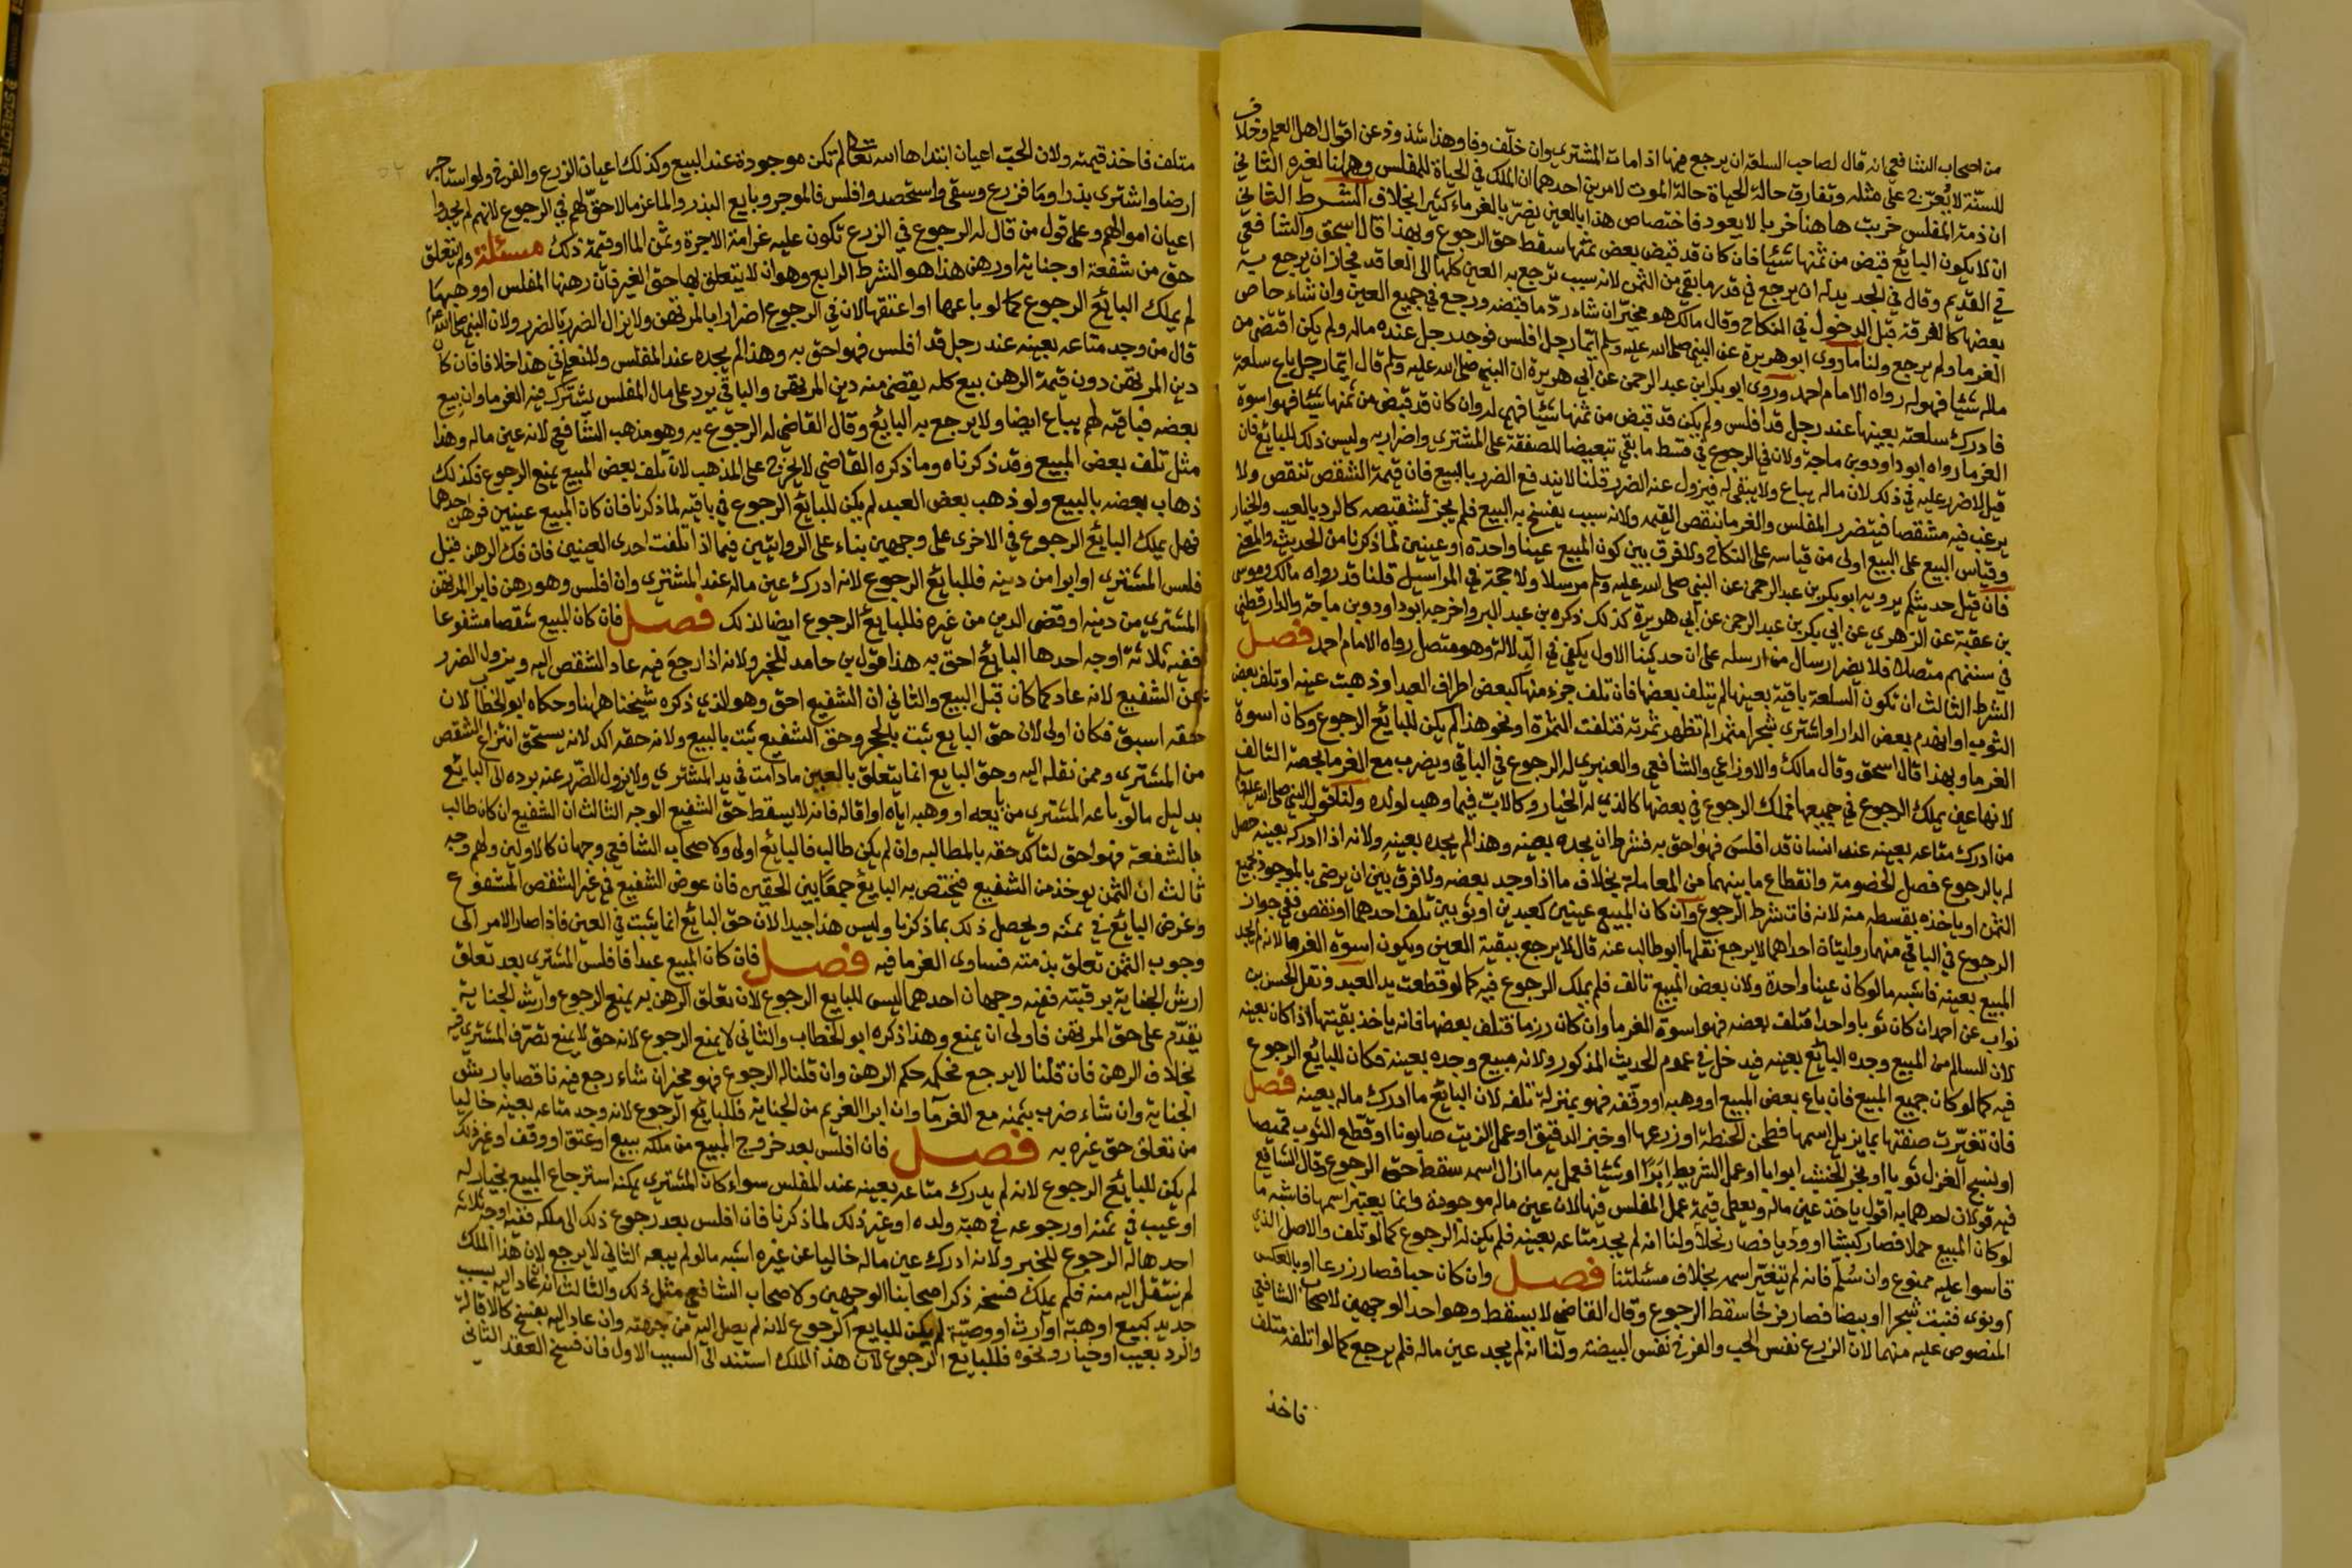 من اصحاب الشافعي انه قال لصاحب السلعة ان يرجع فيها اذا مات المشتري وان خلّف وفا وهذا شذوذ عن اقوال اهل العلم وخلاف
للسنّة لا يُعرّج على مثله وتفارق حالة الحياة حالة الموت لامرين احدهما ان الملك في الحياة للمفلس وههنا لغيره الثاني
ان ذمة المفلس خربت ها هنا خرابا لا يعود فاختصاص هذا بالعين يضرّ بالغرماء كثيرا بخلاف الشرط الثاني
ان لا يكون البايع قبض من ثمنها شيئا فان كان قد قبض بعض ثمنها سقط حق الرجوع وبهذا قال اسحق والشافعي
في القديم وقال في الجديد له ان يرجع في قدر ما بقي من الثمن لانه سبب ترجع به العين كلها الى العاقد فجاز ان يرجع به
بعضها كالفرقة قبل الدخول في النكاح وقال مالك هو مخيّر ان شاء ردّ ما قبضه ورجع في جميع العين وان شاء حاص
الغرما ولم يرجع ولنا ما روى ابو هريرة عن النبي صلى الله عليه وسلم ايّما رجل افلس فوجد رجل عنده ماله ولم يكن اقتضى من
ماله شيئا فهو له رواه الامام احمد وروى ابو بكر ابن عبد الرحمن عن ابي هريرة ان النبي صلى الله عليه وسلم قال ايّما رجل باع سلعة
فادرك سلعته بعينها عند رجل قد افلس ولم يكن قد قبض من ثمنها شيئا فهي له وان كان قد قبض من ثمنها شيئا فهو اسوة
الغرما رواه ابو داود وبن ماجة ولان في الرجوع في قسط ما بقي تبعيضا للصفقة على المشتري واضرار به وليس ذلك للبائع فان
قيل لا ضرر عليه في ذلك لان ماله يباع ولا يبقى له فيزول عنه الضرر قلنا لا يندفع الضرر بالبيع فان قيمة الشقص تنقص ولا
يرغب فيه مشقصا فيتضرر المفلس والغرما بنقص القيمه ولانه سبب يفسخ به البيع فلم يجز تشقيصه كالرد بالعيب والخيار
وقياس البيع على البيع اولى من قياسه على النكاح ولا فرق بين كون المبيع عينا واحدة او عينين لما ذكرنا من الحديث والمعنى
فان قيل حديثكم يرويه ابو بكر بن عبد الرحمن عن النبي صلى الله عليه وسلم مرسلا ولا حجة في المراسيل قلنا قد رواه مالك وموسى
بن عقبة عن الزهري عن ابي بكر بن عبد الرحمن عن ابي هريرة كذلك ذكره بن عبد البر واخرجه ابو داود وبن ماجة والدارقطني
في سننهم متصلا فلا يضر ارسال من ارسله على ان حديثنا الاول يكفي في الدلالة وهو متصل رواه الامام احمد فصل
الشرط الثالث ان تكون السلعة باقية بعينها لم يتلف بعضها فان تلف جزء منها كبعض اطراف العبد او ذهبت عينه او تلف بعض
الثوب او انهدم بعض الدار او اشترى شجرا مثمرا لم تظهر ثمرته فتلفت الثمرة او نحو هذا لم يكن للبائع الرجوع وكان اسوة
الغرما وبهذا قال اسحق وقال مالك والاوزاعي والشافعي والعنبري له الرجوع في الباقي ويضرب مع الغرما بحصة التالف
لانها عين يملك الرجوع في جميعها فملك الرجوع في بعضها كالذي له الخيار وكالاب فيما وهب لولده ولنا قول النبي صلى الله عليه وسلم
من ادرك متاعه بعينه عند انسان قد افلس فهو احق به فشرط ان يجده بعينه وهذا لم يجده بعينه ولانه اذا ادركه بعينه حصل
له بالرجوع فصل الخصومة وانقطاع ما بينهما من المعاملة بخلاف ما اذا وجد بعضه ولا فرق بين ان يرضى بالموجود بجميع
الثمن او ياخذه بقسطه منه لانه فات شرط الرجوع وان كان المبيع عينين كعبدين او ثوبين تلف احدهما او نقص ففي جواز
الرجوع في الباقي منهما روايتان احداهما لا يرجع نقلها ابو طالب عنه قال لا يرجع ببقية العين ويكون اسوة الغرما لانه لم يجد
المبيع بعينه فاشبه ما لو كان عينا واحدة ولان بعض المبيع تالف فلم يملك الرجوع فيه كما لو قطعت يد العبد ونقل الحسن بن
ثواب عن احمد ان كان ثوبا واحدا فتلف بعضه فهو اسوة الغرما وان كان رزما فتلف بعضها فانه ياخذ بقيتها اذا كان بعينه
لان السالم من المبيع وجده البائع بعينه فيدخل في عموم الحديث المذكور ولانه مبيع وجده بعينه فكان للبائع الرجوع
فيه كما لو كان جميع المبيع فان باع بعض المبيع او وهبه او وقفه فهو بمنزلة تلفه لان البائع ما ادرك ماله بعينه فصل
فان تغيّرت صفتها بما يزيل اسمها فطحن الحنطة او زرعها او خبز الدقيق او عمل الزيت صابونا او قطّع الثوب قميصا
او نسج الغزل ثوبا او نجّر الخشب ابوابا او عمل الشريط اِبَرًا او شيئا فعمل به ما ازال اسمه سقط حق الرجوع وقال الشافعي
فيه قولان احدهما به اقول ياخذ عين ماله ويعطي قيمة عمل المفلس فيها لان عين ماله موجودة وانما يعتبر اسمها فاشبه ما
لو كان المبيع حملا فصار كبشا او وديا فصار نخلا ولنا انه لم يجد متاعه بعينه فلم يكن له الرجوع كما لو تلف والاصل الذي
قاسوا عليه ممنوع وان سُلّم فانه لم تتغيّر اسمه بخلاف مسئلتنا فصل وان كان حبا فصار زرعا او بالعكس
او نوى فنبت شجرا او بيضا فصار فرخا سقط الرجوع وقال القاضي لا يسقط وهو احد الوجهين لاصحاب الشافعي
المنصوص عليه منهما لان الزرع نفس الحب والفرخ نفس البيضة ولنا انه لم يجد عين ماله فلم يرجع كما لو اتلفه متلف
فاخذ
متلف فاخذ قيمته ولان الحب اعيان ابتداها الله تعالى لم تكن موجودة عند البيع وكذلك اعيان الزرع والفرخ ولو استاجر
ارضا واشترى بذرا وما فزرع وسقى واستحصد وافلس فالموجر وبايع البذر والما غرما لا حق لهم في الرجوع لانهم لم يجدوا
اعيان اموالهم وعلى قول من قال له الرجوع في الزرع تكون عليه غرامة الاجرة وثمن الما او قيمة ذلك مسئلة ولم يتعلق
حق من شفعة او جناية او رهن هذا هو الشرط الرابع وهو ان لا يتعلق بها حق الغير فان رهنها المفلس او وهبها
لم يملك البائع الرجوع كما لو باعها او اعتقها لان في الرجوع اضرارا بالمرتهن ولا يزال الضرر بالضرر ولان النبي صلى الله عليه
قال من وجد متاعه بعينه عند رجل قد افلس فهو احق به وهذا لم يجده عند المفلس ولا نعلم في هذا خلافا فان كان
دين المرتهن دون قيمة الرهن بيع كله يقضى منه دين المرتهن والباقي يرد على مال المفلس يشترك فيه الغرما وان بيع
بعضه فباقيه لهم يباع ايضا ولا يرجع به البايع وقال القاضي له الرجوع به وهو مذهب الشافعي لانه عين ماله وهذا
مثل تلف بعض المبيع وقد ذكرناه وما ذكره القاضي لا يخرج على المذهب لان تلف بعض المبيع يمنع الرجوع فكذلك
ذهاب بعضه بالبيع ولو ذهب بعض العبد لم يكن للبائع الرجوع في باقيه لما ذكرنا فان كان المبيع عينين فرهن احدهما
فهل يملك البائع الرجوع في الاخرى على وجهين بناء على الروايتين فيما اذا تلفت احدى العينين فان فك الرهن قبل
فلس المشتري او ابرا من دينه فللبائع الرجوع لانه ادرك عين ماله عند المشتري وان افلس وهو رهن فابرا المرتهن
المشتري من دينه او قضى الدين من غيره فللبايع الرجوع ايضا لذلك فصل فان كان المبيع شقصا مشفوعا
ففيه ثلاثة اوجه احدها البايع احق به هذا قول بن حامد للخبر ولانه اذا رجع فيه عاد الشقص اليه ويزول الضرر
عن الشفيع لانه عاد كما كان قبل البيع والثاني ان الشفيع احق وهو الذي ذكره شيخنا ههنا وحكاه ابو الخطاب لان
حقه اسبق فكان اولى لان حق البايع ثبت بالحجر وحق الشفيع ثبت بالبيع ولانه حقه اكد لانه يستحق انتزاع الشقص
من المشتري وممن نقله اليه وحق البايع انما يتعلق بالعين ما دامت في يد المشتري ولا يزول الضرر عنه برده الى البائع
بدليل ما لو باعه المشتري من بايعه او وهبه اياه او اقاله فانه لا يسقط حق الشفيع الوجه الثالث ان الشفيع ان كان طالب
بالشفعة فهو احق لتاكد حقه بالمطالبه وان لم يكن طالب فالبائع اولى ولاصحاب الشافعي وجهان كالاولين ولهم وجه
ثالث ان الثمن يوخذ من الشفيع فيختص به البايع جمعا بين الحقين فان عوض الشفيع في عين الشقص المشفوع
وغرض البائع في ثمنه ويحصل ذلك بما ذكرنا وليس هذا جيدا لان حق البائع انما يثبت في العين فاذا صار الامر الى
وجوب الثمن تعلق بذمته فساوى الغرما فيه فصل فان كان المبيع عبدا فافلس المشتري بعد تعلق
ارش الجناية برقبته ففيه وجهان احدهما ليس للبايع الرجوع لان تعلق الرهن به يمنع الرجوع وارش الجناية
يقدّم على حق المرتهن فاولى ان يمنع وهذا ذكره ابو الخطاب والثاني لا يمنع الرجوع لانه حق لا يمنع تصرّف المشتري فيه
بخلاف الرهن فان قلنا لا يرجع فحكمه حكم الرهن وان قلنا له الرجوع فهو مخير ان شاء رجع فيه ناقصا بارش
الجناية وان شاء ضرب بثمنه مع الغرما وان ابرا الغريم من الجناية فللبائع الرجوع لانه وجد متاعه بعينه خاليا
من تعلق حق غيره به فصل فان افلس بعد خروج المبيع من ملكه ببيع او عتق او وقف او غير ذلك
لم يكن للبائع الرجوع لانه لم يدرك متاعه بعينه عند المفلس سواء كان المشتري يمكنه استرجاع المبيع بخيار له
او عيب في ثمنه او رجوعه في هبة ولده او غير ذلك لما ذكرنا فان افلس بعد رجوع ذلك الى ملكه ففيه اوجه ثلاثة
احدها له الرجوع للخبر ولانه ادرك عين ماله خاليا عن غيره اشبه ما لو لم يبعه الثاني لا يرجع لان هذا الملك
لم ينتقل اليه منه فلم يملك فسخه ذكر اصحابنا الوجهين ولاصحاب الشافعي مثل ذلك والثالث انه ان عاد اليه بسبب
جديد كبيع او هبة او ارث او وصيّة لم يكن للبايع الرجوع لانه لم يصل اليه من جهته وان عاد اليه بفسخ كالاقالة
والرد بعيب او خيار ونحوه فللبايع الرجوع لان هذا الملك استند الى السبب الاول فان فسخ العقد الثاني